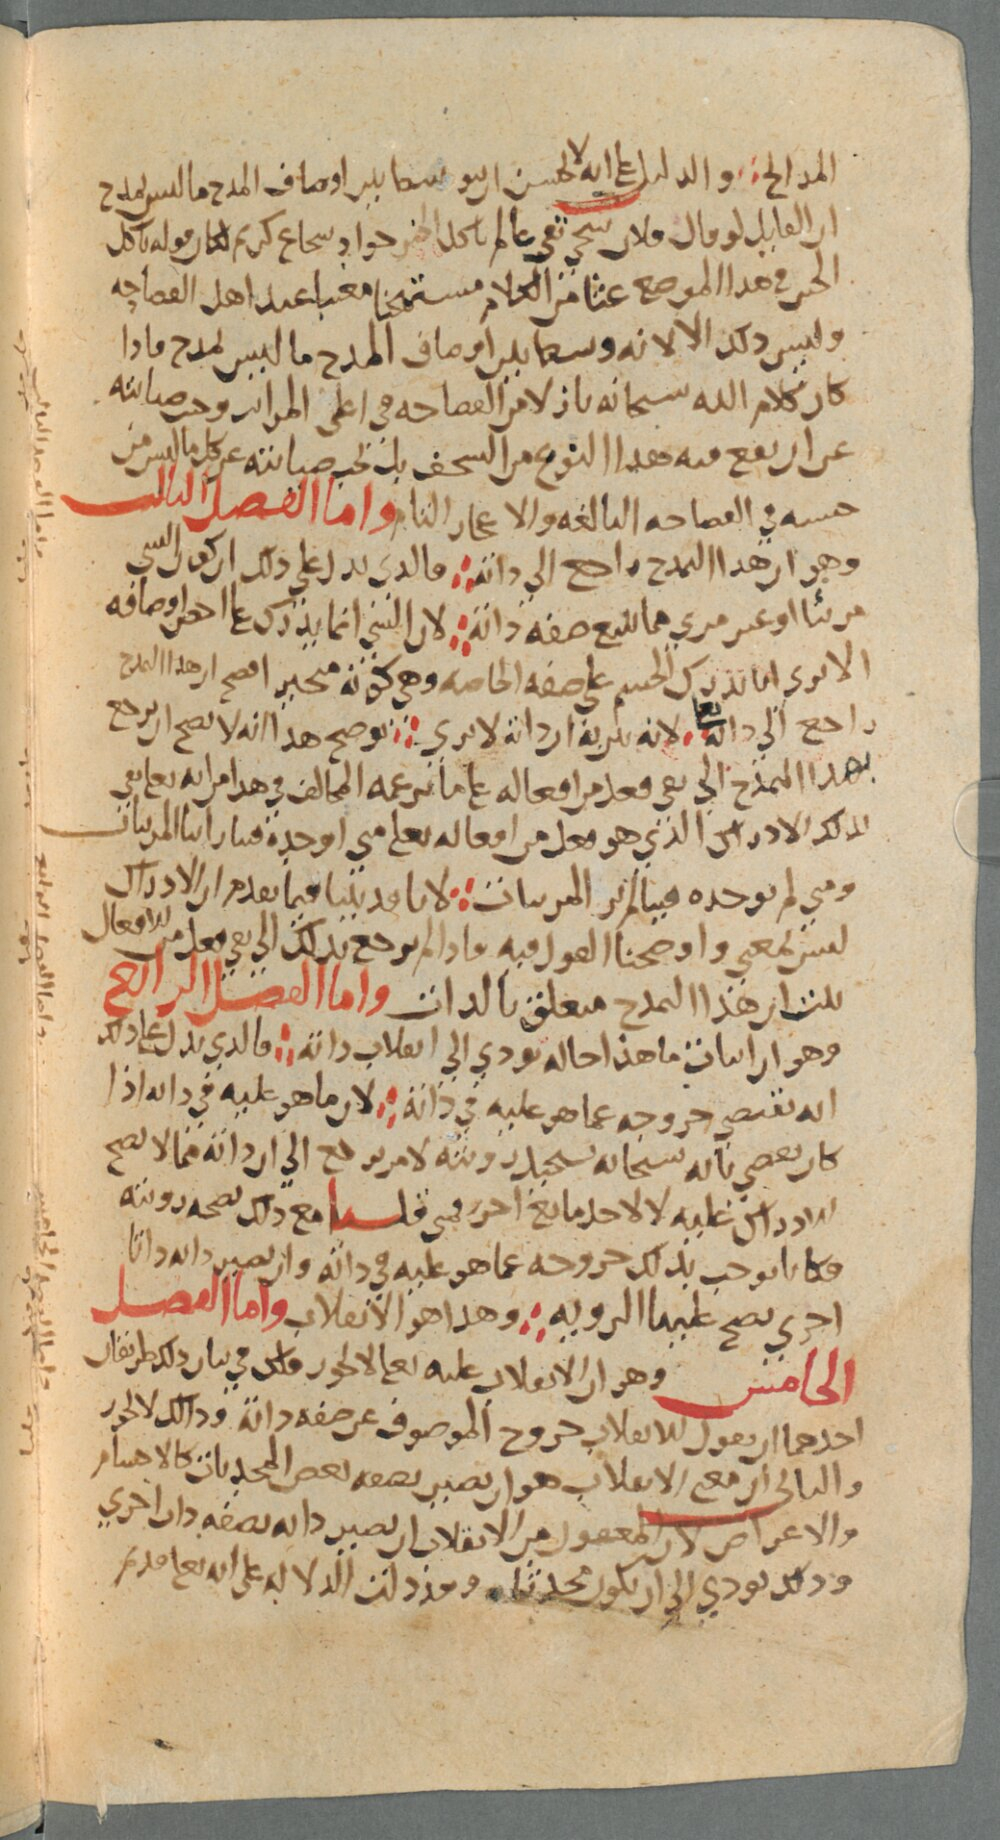 المدائح والدليل على انه لا يحسن ان يوسط بين اوصاف المدح ما ليس بمدح
ان القايل لو قال فلان سخي تقي عالم ياكل الخبز جواد شجاع كريم لكان قوله ياكل
الخبز في هذا الموضع عثا من الكلام مستهجنا معيبا عند اهل الفصاحه
وليس ذلك الا لانه وسط بين اوصاف المدح ما ليس بمدح فاذا
كان كلام الله سبحانه نازلا من الفصاحه في اعلى المراتب وجب صيانته
عن ان يقع فيه هذا النوع من السخف بل تجب صيانته عن كل ما ليس من
جنسه في الفصاحه البالغه والاعجاز التام واما الفصل الثالث
وهو ان هذا التمدح راجع الى ذاته فالذي يدل على ذلك ان كون الشي
مرئيا او غير مري مما يتبع صفه ذاته لان الشي انما يدرك على اخص اوصافه
الا ترى انا ندرك الجسم على صفه الخاصه وهي كونه متحيز افصح ان هذا التمدح
راجع الى ذاته تعا لانه يريد ان ذاته لا ترى يوضح هذا انه لا يصح ان يرجع
بهذا التمدح الى نفي فعل من افعاله على ما يزعمه المخالف في هذا من انه تعا نفى
بذلك الادراك الذي هو فعل من افعاله تعا متى اوجده فينا راينا المرئيات
ومتى لم يوجده فينا لم نر المرئيات لانا قد بينا فيما تقدم ان الادراك
ليس بمعنى واوضحنا القول فيه فاذا لم يرجع بذلك الى نفي فعل من الافعال
ثبت ان هذا التمدح متعلق بالذات واما الفصل الرابع
وهو ان اثبات ما هذا حاله يودي الى انقلاب ذاته فالذي يدل على ذلك
انه يقتضي خروجه عما هو عليه في ذاته لان ما هو عليه في ذاته اذا
كان يقضي بانه سبحانه يستحيل رويته لامر يرجع الى ان ذاته مما لا يصح
الادراك عليه لا لاجل مانع اخر فمتى قلنا مع ذلك بصحه رويته
فكانا نوجب بذلك خروجه عما هو عليه في ذاته وان تصير ذاته ذاتا
اخرى يصح عليها الرويه وهذا هو الانقلاب واما الفصل
الخامس وهو ان الانقلاب عليه تعا لا يجوز فلك في بيان ذلك طريقان
احدهما ان يقول الانقلاب خروج الموصوف عن صفه ذاته وذلك لا يجوز
والثاني ان معنى الانقلاب هو ان يصير بصفه بعض المحدثات كالاجسام
والاعراض لان المعقول من الانقلاب ان يصير ذاته بصفه ذات اخرى
وذلك يودي الى ان يكون محدثا وقد دلت الدلاله على انه تعا قديم